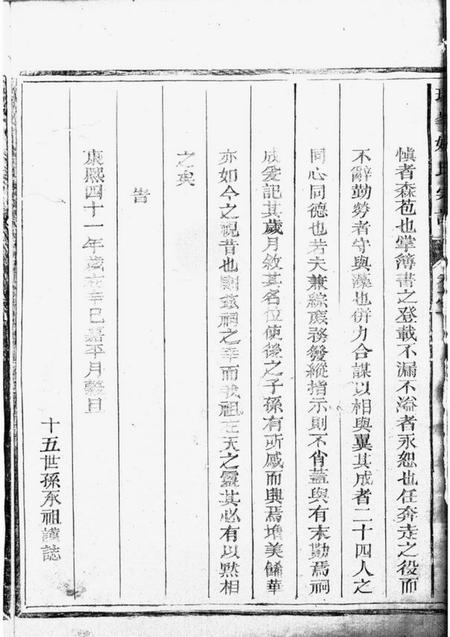 慎者森苞也掌簿書之登載不漏不溢者永恕也任奔走之役而
不辭勤勞者守與藻也併力合謀以相與翼其成者二十四人之
同心同德也若夫兼綜庶務發縱指示則不肖蓋與有末勩焉祠
成爰記其歲月敘其名位使後之子孫有所感而興焉增美餙華
亦如今之視昔也則茲祠之幸而我祖在天之靈其必有以默相
之矣
旹
康熙四十一年歲在辛巳嘉平月穀旦
十五世孫承祖謹誌